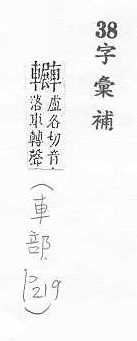 38字彙補
盧各切音
洛車轉聲
(車部 P219)